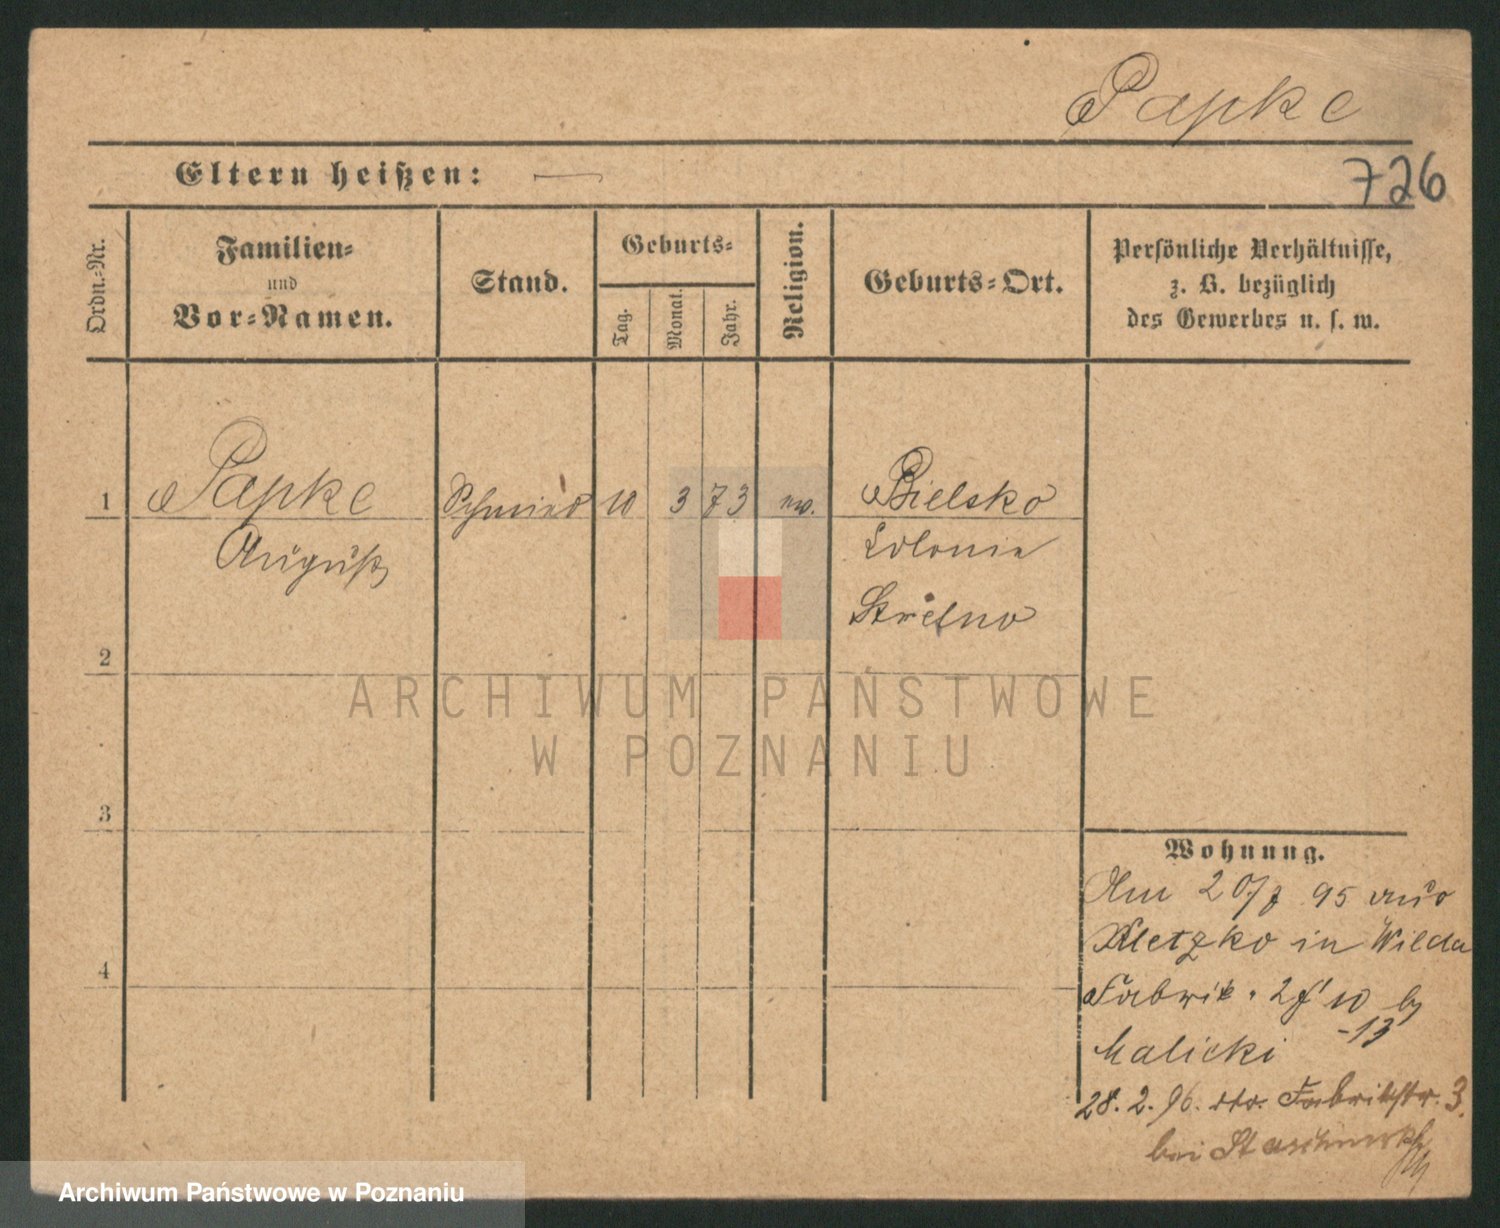 Papke
Eltern heißen: —
726
Ordn.-Nr.
Familien-
und
Vor-Namen.
Stand.
Geburts-
Tag.
Monat.
Jahr.
Religion.
Geburts-Ort.
Persönliche Verhältnisse,
z. B. bezüglich
des Gewerbes u. s. w.
1 Papke Schmied 10 3 73 ev. Bielsko
August Colonie
Strelno
2
3
4
Wohnung.
Am 20/7 95 aus
Kletzko in Wilda
Fabrik 10
-13
Malicki
28. 2. 96. Fabrikstr. 3.
bei
ARCHIWUM PAŃSTWOWE
W POZNANIU
Archiwum Państwowe w Poznaniu